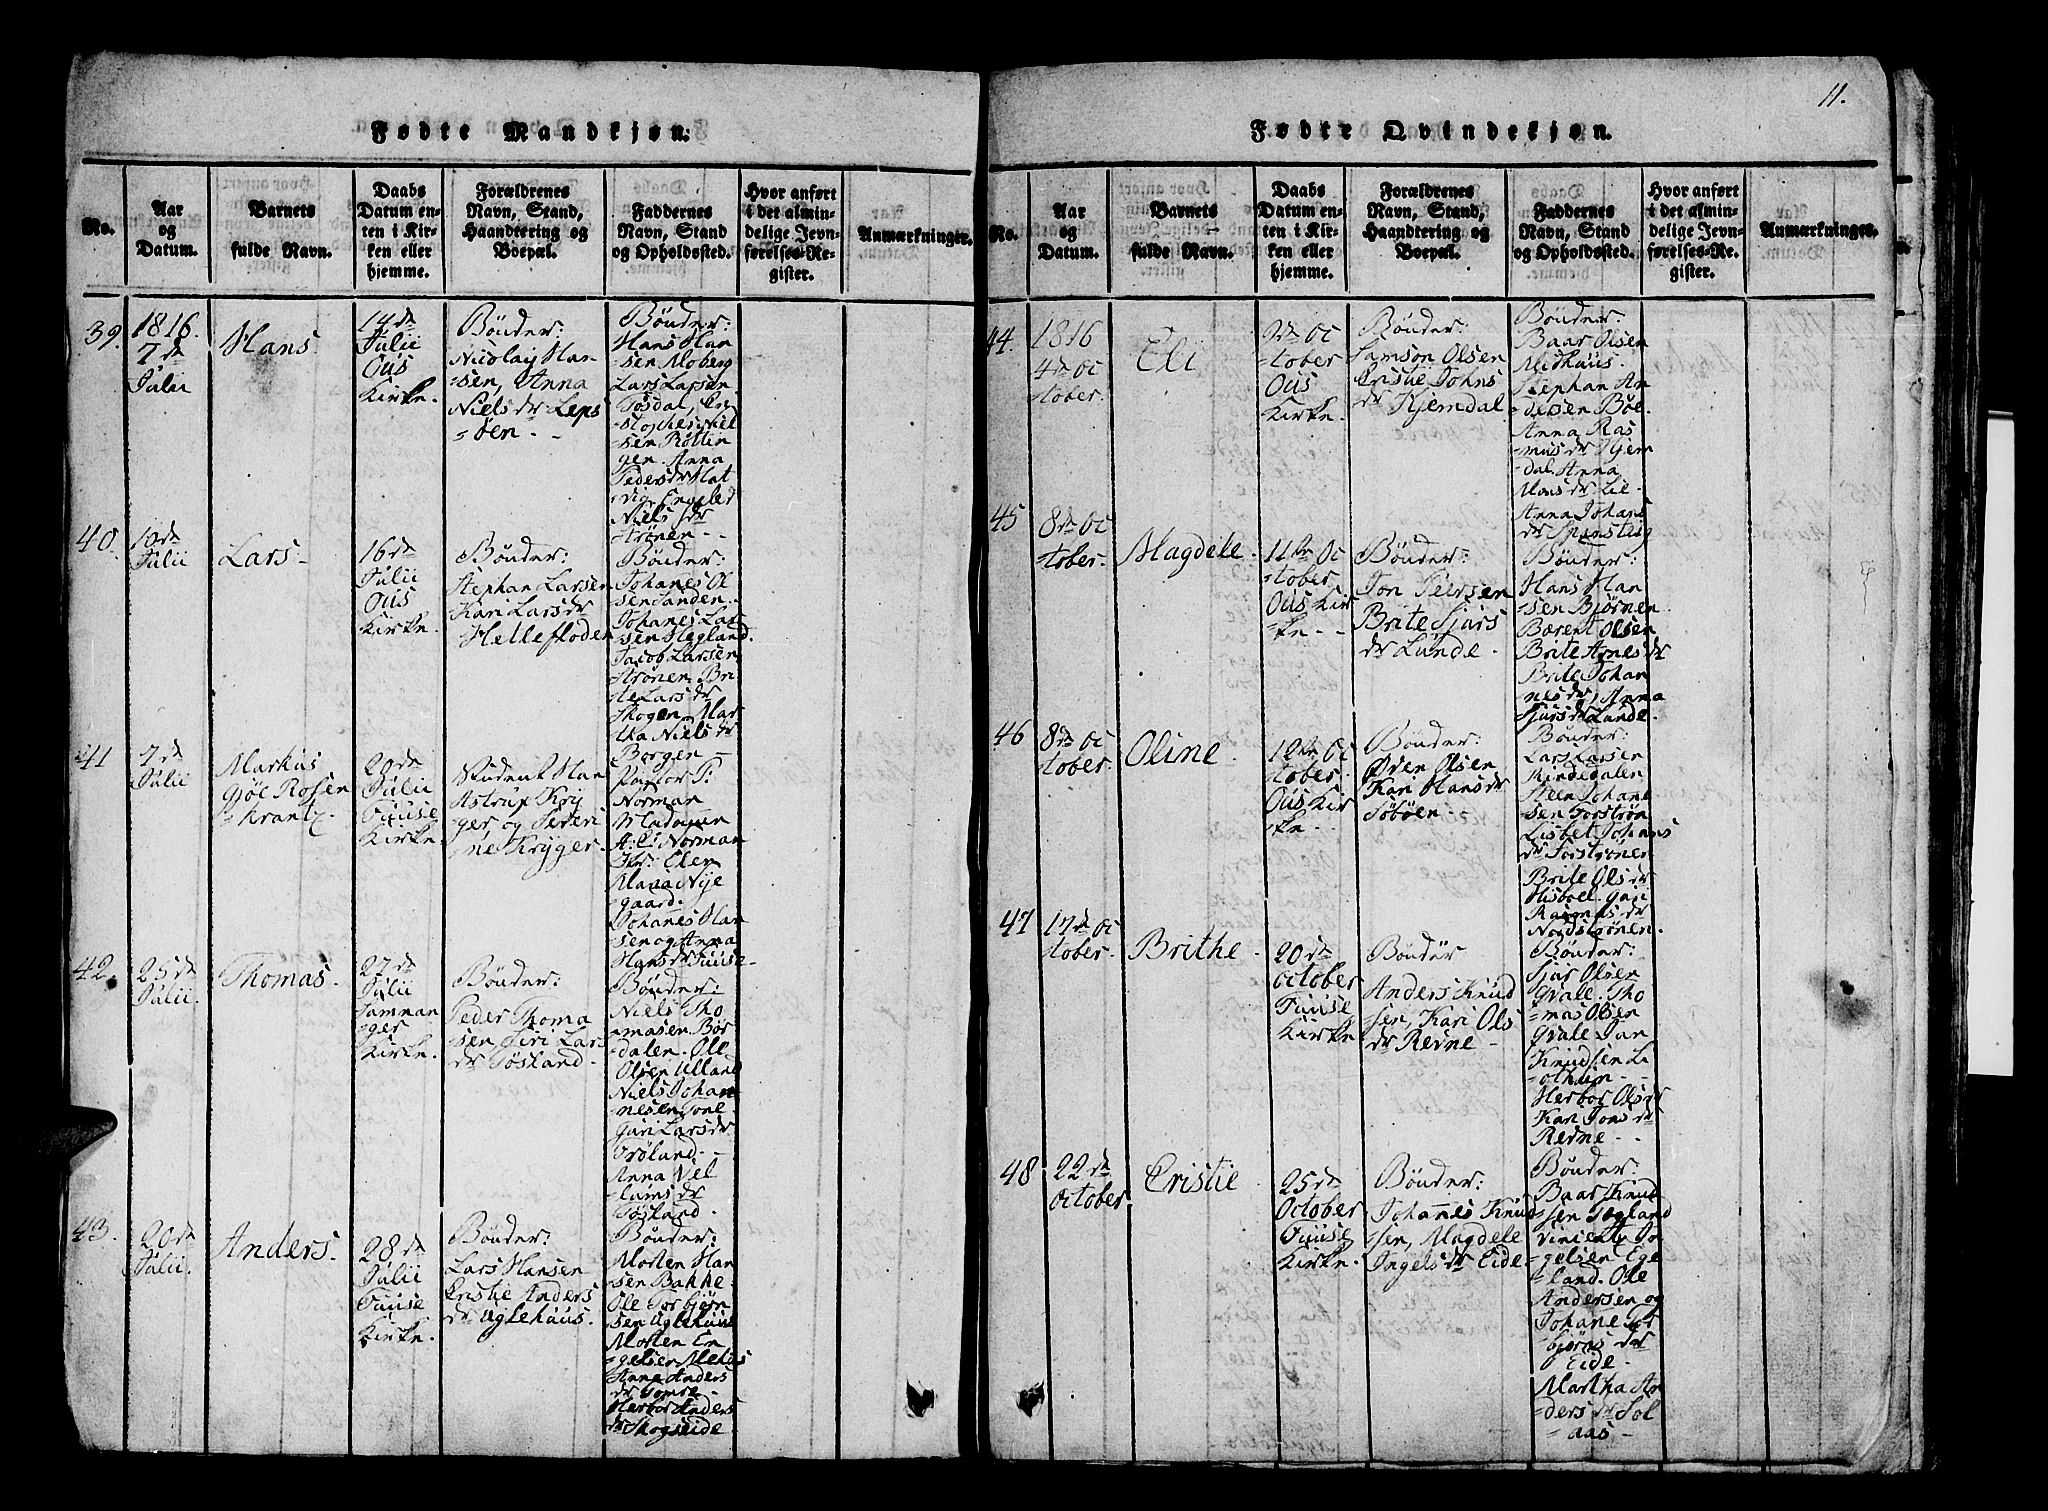 11.
Fødte Mandkjøn.
No.
Aar
og
Datum.
Barnets
fulde Navn.
Daabs
Datum en-
ten i Kir-
ken eller
hjemme.
Forældrenes
Navn, Stand,
Haandtering og
Boepæl.
Faddernes
Navn, Stand
og Opholdssted.
Hvor anført
i det almin-
delige Jevn-
førelses-Re-
gister.
Anmærkninger.
39.
1816.
7de
Julii
Hans
14de
Julii
Ous
Kirke.
Bönder:
Nicolay Han
-sen, Anna
Niels dr Leps
-öen.
Bönder:
Hans Han
sen Moberg
Lars Larsen
Tösdal,
sen Röttin
gen. Anna
Peders dr Hat
vig. Engeled
Niels dr
Strönen
40.
10de
Julii
Lars
16de
Julii
Ous
Kirke.
Bönder:
Stephan Larsen
Kari Lars dr
Hellefloden
Bönder:
Johanes Ol
sen Sanden.
Johanes Lar
sen Hegland.
Jacob Larsen
Strönen. Bri
te Lars dr
Skogen. Mar
tha Niels dr
Borgen
41
7de
Julii
Markus
Gjöe Rosen
krantz.
20de
Julii
Fuuse
Kirke.
Student Han
Astrup Kry
ger og Severi
ne Kryger.
Pastor T:
Norman
Madamen
A: C: Norman
Jfr: Elen
Maria Nye
gaard.
Johanes Han
sen og Anna
Hans dr Fuuse
42.
25de
Julii.
Thomas.
27de
Julii
Samnan
-ger
Kirke.
Bönder:
Peder Thoma
sen Siri Lars
dr Tösland
Bönder:
Niels Tho
masen Bör
dalen. Ole
Olsen Ulland
Niels Johan
nesen Tone
Guri Lars dr
Tröland.
Anna Vel
lums dr
Tösland.
43.
20de
Julii.
Anders.
28de
Julii
Fuuse
Kirke.
Bönder:
Lars Hansen
Cristie Anders
dr Uglehuus.
Bönder:
Morten Han
sen Bakke
Ole Torbjörn
sen Uglehuus
Morten En
gelsen Mehus
Anne Anders
dr Tomre
Herbor Anders
dr Skogseide
Fødte Qvindekjøn.
No.
Aar
og
Datum.
Barnets
fulde Navn.
Daabs
Datum en-
ten i Kir-
ken eller
hjemme.
Forældrenes
Navn, Stand,
Haandtering og
Boepæl.
Faddernes
Navn, Stand
og Opholdssted.
Hvor anført
i det almin-
delige Jevn-
førelses-Re-
gister.
Anmærkninger.
44.
1816
4de Oc
tober.
Eli
Oc
-tober
Ous
Kirke.
Bönder:
Samson Olsen
Cristie Johns
dr Kjemdal
Bönder:
Baar Olsen
Midhuus.
Stephan An
dersen Böe.
Anna Ras
mus dr Kjem
dal. Anna
Mons dr Lie
Anna Johans
45
8de Oc
tober.
Magdele.
11te Oc
-tober
Ous Kir
ke.
Bönder:
Jon Peersen
Brite Sjurs
dr Lunde
Bönder:
Hans Han
sen Björnen
Berent Olsen
Brite Arnes dr
Brite Johan
nes dr, Anna
Sjurs dr Lunde
46
8de Oc
tober.
Oline
12te Oc
tober.
Ous Kir
ke
Bönder:
Ören Olsen
Kari Hans dr
Söböen
Bönder:
Lars Larsen
Rindedalen
Steen Johane
sen Torströn
Lisbet Johans
dr Torströnen
Brite Ols dr
Guri
Rasmus dr
Nordströnen.
47
17de Oc
tober.
Brithe
20de
October
Fuuse
Kirke
Bönder
Anders Knud
sen, Kari Ols
dr Revne
Bönder:
Sjur Olsen
Qvale. Tho
mas Olsen
Qvale Jan
Knudsen Li
othun
Herbor Ols dr
Kari Jons dr
Revne
48
22de
October.
Cristie
25de
October
Fuuse
Kirke.
Bönder:
Johanes Knud
sen, Magdele
Ingels dr Eide
Bönder:
Baar Knud
sen Sogland
In
gelsen Ege
land. Ole
Andersen og
Johane Tor
björns dr
Eide
Martha An
ders dr Sol
aas